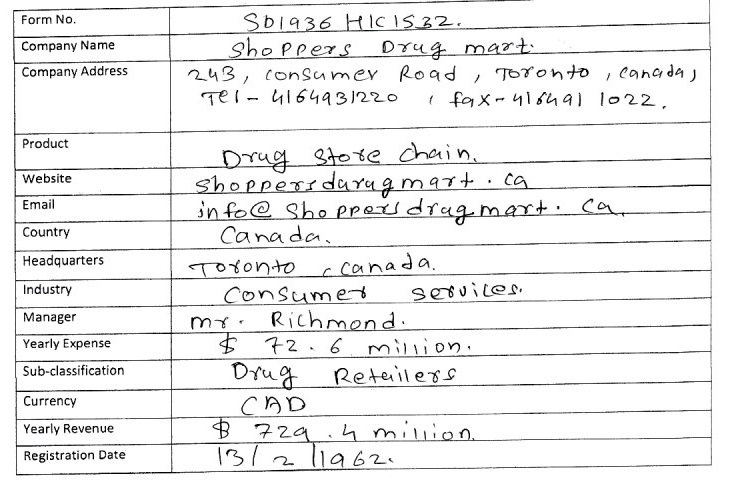 Form No. SD1936 HIC1532.
Company Name Shoppers Drug mart.
Company Address 243, consumer Road, Toronto, canada,
Tel - 4164931220, fax - 416491 1022.
Product Drug store chain.
Website shoppersdarugmart.ca
Email info@shoppersdrugmart.ca.
Country Canada.
Headquarters Toronto, canada.
Industry Consumer services.
Manager mr. Richmond.
Yearly Expense $ 72.6 million.
Sub-classification Drug Retailers
Currency CAD
Yearly Revenue $ 729.4 million.
Registration Date 13/2/1962.